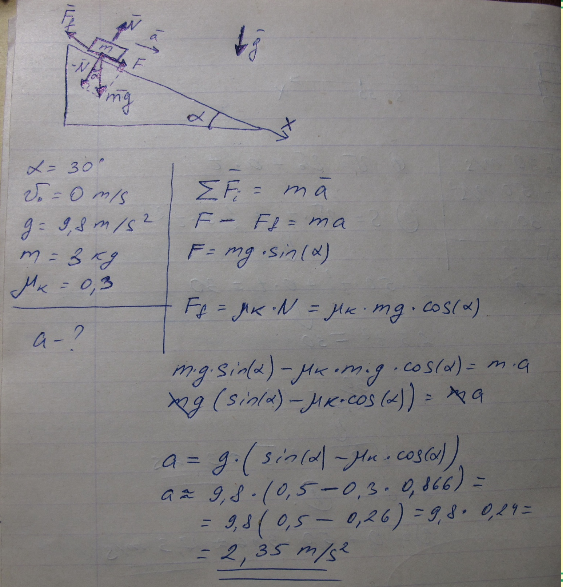 F̄f N̄ ā ḡ
m
-N̄ α F
m̄g
α x
α = 30°
v₀ = 0 m/s
g = 9,8 m/s²
m = 3 kg
μk = 0,3
a - ?
∑F̄i = mā
F - Ff = ma
F = mg·sin(α)
Ff = μk·N = μk·mg·cos(α)
m·g·sin(α) - μk·m·g·cos(α) = m·a
mg(sin(α) - μk·cos(α)) = ma
a = g·(sin(α) - μk·cos(α))
a ≈ 9,8·(0,5 - 0,3·0,866) =
= 9,8(0,5 - 0,26) = 9,8·0,24 =
= 2,35 m/s²